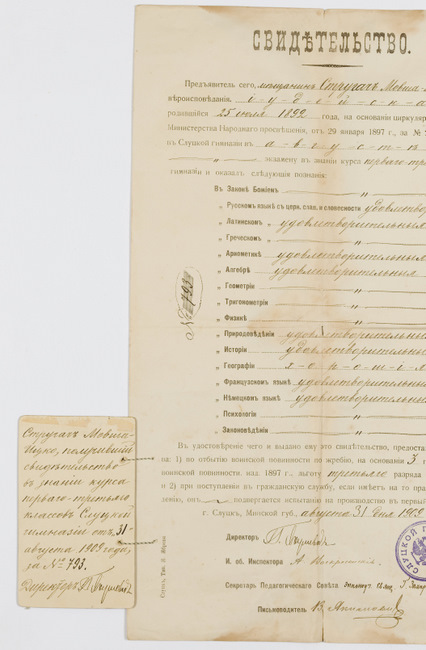 СВИДѢТЕЛЬСТВО.
Предъявитель сего, мѣщанинъ Стругачъ Мовша-
вѣроисповѣданія, і-у-д-е-й-с-к-а
родившійся 25 іюля 1892 года, на основаніи циркуляр
Министерства Народнаго просвѣщенія, отъ 29 января 1897 г., за №
въ Слуцкой гимназіи въ а-в-г-у-с-т-ѣ
„ экзамену въ знаніи курса перваго-тр
гимназіи и оказалъ слѣдующія познанія:
Въ Законѣ Божіемъ „
„ Русскомъ языкѣ съ церк. слав. и словесности удовлетвор
„ Латинскомъ „ удовлетворительныя
„ Греческомъ „ „
„ Ариѳметикѣ удовлетворительныя
„ Алгебрѣ удовлетворительныя
„ Геометріи „
„ Тригонометріи „
„ Физикѣ „
„ Природовѣдѣніи удовлетворительныя
„ Исторіи удовлетворительны
„ Географіи х-о-р-о-ш-і-
„ Французскомъ языкѣ удовлетворительны
„ Нѣмецкомъ языкѣ удовлетворительны
„ Психологіи „
„ Законовѣдѣнію „
Въ удостовѣреніе чего и выдано ему это свидѣтельство, предостав
на: 1) по отбытію воинской повинности по жребію, на основаніи 3
воинской повинности изд. 1897 г., льготу третьяго разряда
и 2) при поступленіи въ гражданскую службу, если
ленію, онъ подвергается испытанію на производство въ первый
г. Слуцкъ, Минской губ. августа 31 дня 1909
Директоръ
И. об. Инспектора А
Секретарь Педагогическаго Совѣта
Письмоводитель
№ 793
СЛУЦКОЙ Г
Стругачъ Мовша-
Ицко, получившій
свидѣтельство
въ знаніи курса
перваго-третьяго
классовъ Слуцкой
гимназіи отъ 31-
августа 1909 года,
за № 793.
Директоръ